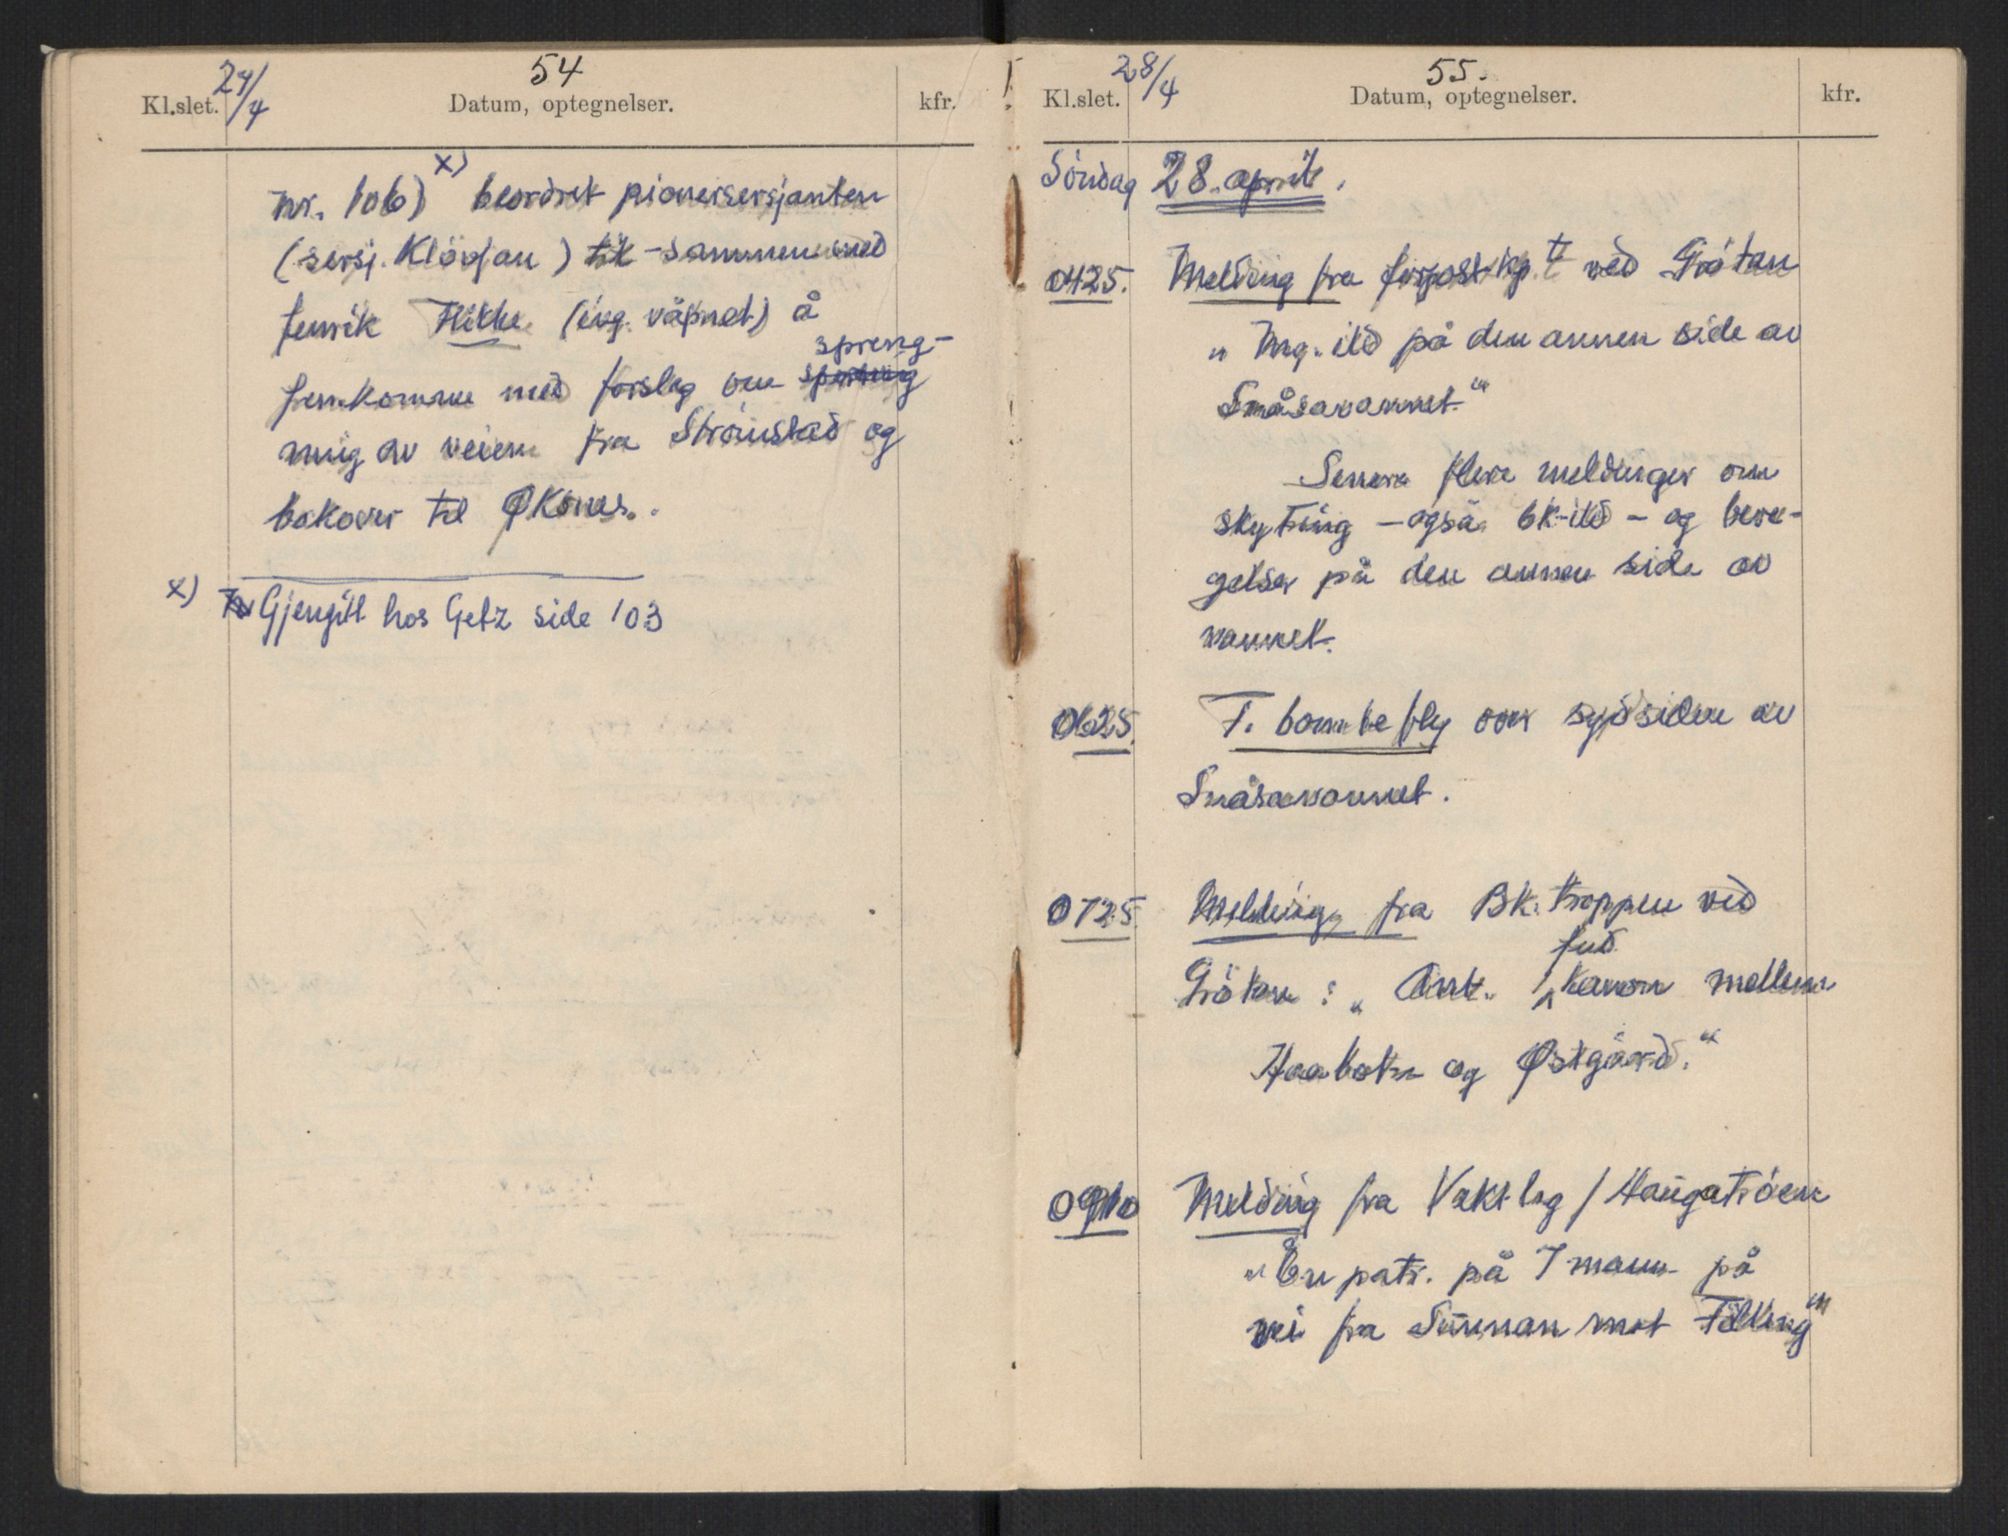 27/4
54
Kl.slet.
Datum, optegnelser.
kfr.
x)
nr. 106) beordret pionersersjanten
(sersj. Klövjan) til - sammen med
fenrik Flikke (ing. våpnet) å
spreng-
fremkomme med forslag om sperring
ning av veien fra Strömstad og
bakover til Økones.
x) Gjengitt hos Getz side 103
28/4
55.
Kl.slet.
Datum, optegnelser.
kfr.
Söndag 28. april.
0425. Melding fra forpostkp.t ved Grötan
„Mg. ild på den annen side av
Snåsavannet."
Senere flere meldinger om
skytning - også bk-ild - og beve-
gelser på den annen side av
vannet.
0625. F. bombefly over sydsiden av
Snåsavannet.
0725. Melding fra Bk. troppen ved
fied
Grötan: „Ant. kanon mellem
og Østgård."
0910 Melding fra Vaktlag / Haugatröen
„En patr. på 7 mann på
vei fra Sunnan mot Fölling"